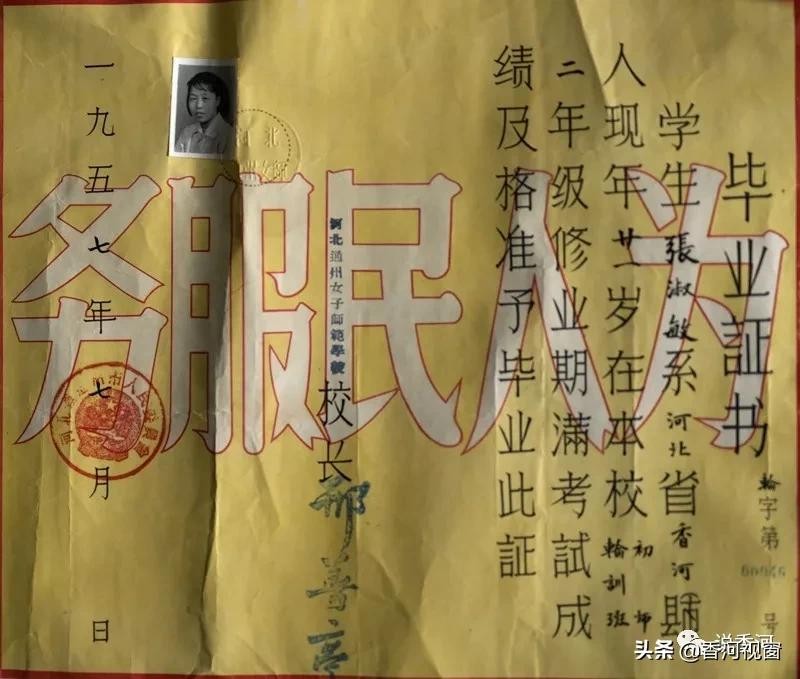 毕业証书
翰字第60046号
学生張淑敏系河北省香河縣
人现年廿一岁在本校初师轮訓班
二年级修业期滿考試成
绩及格准予毕业此証
河北通州女子師範學校
校长
一九五七年七月 日
为人民服务
河北
州女师
说香河
头条 @香河视窗